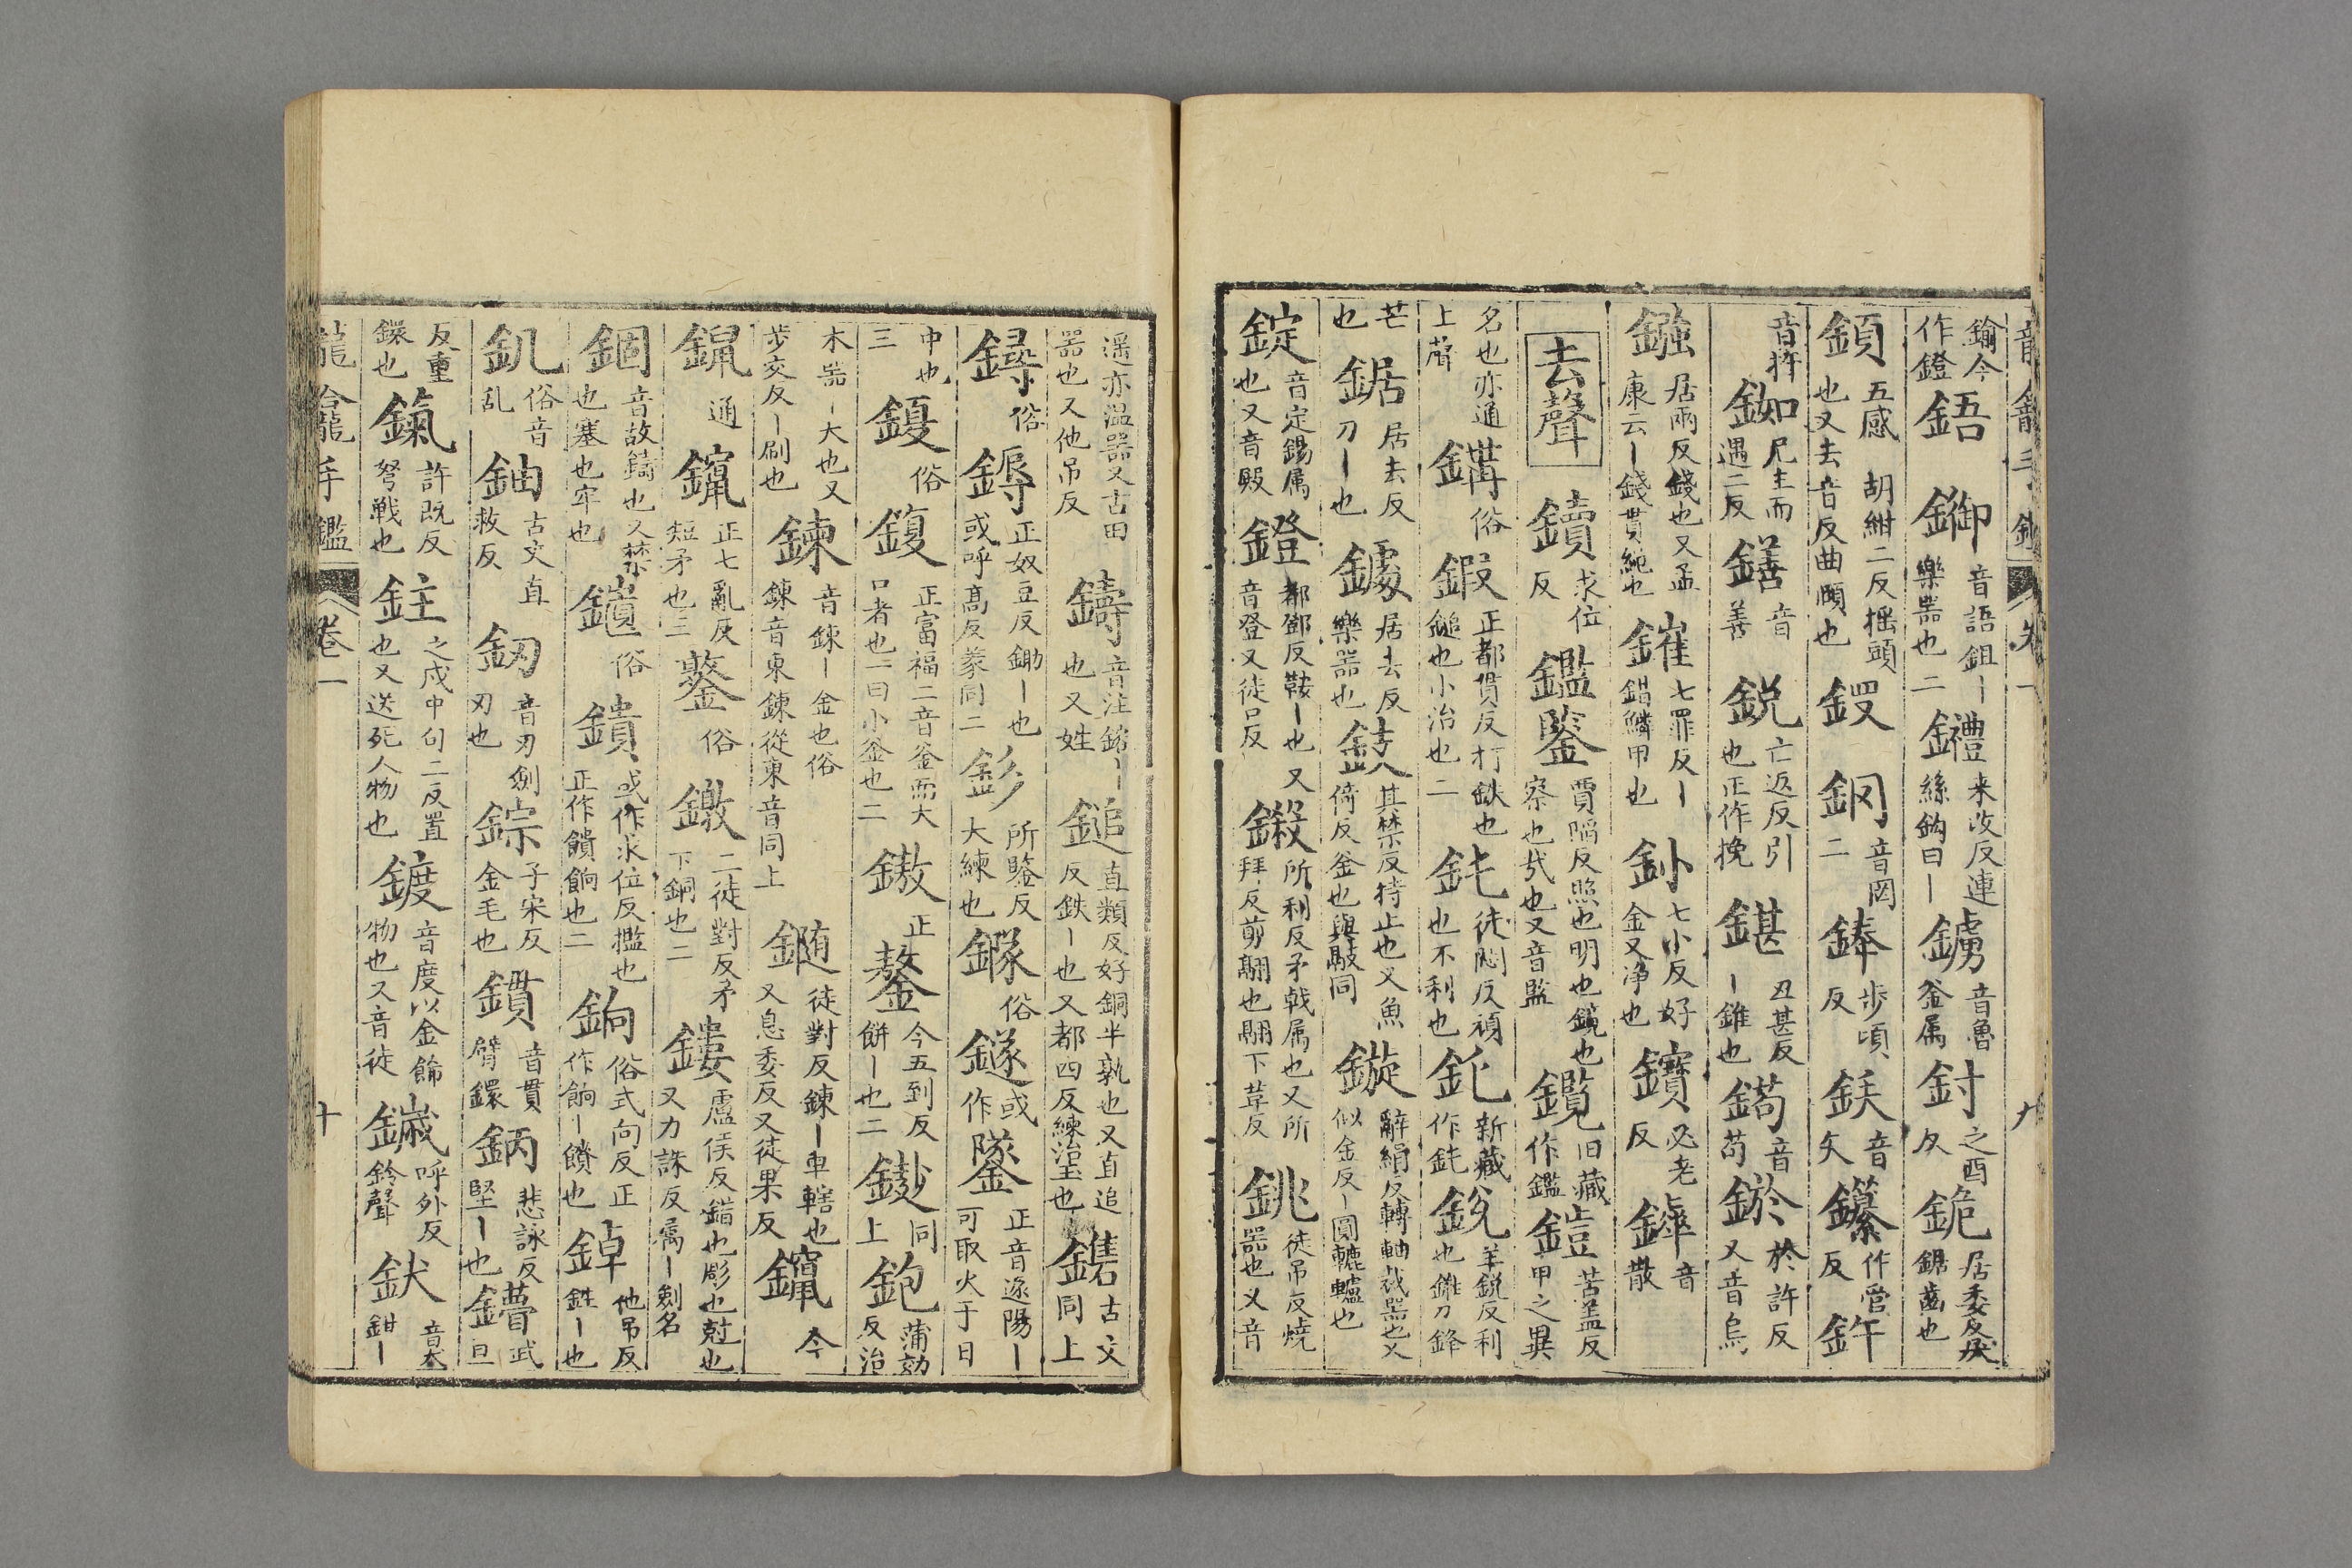 鋊今作鐙鋙鋤音語鉏丨樂器也二鑸来改反連絲鈎曰丨鏀音魯釜属釪之酉反鉇居委反鋸齒也
鎮五感胡紺二反揺頭也又去音反曲頤也鍐鋼二音罔鋒步項反鉃音矢鑻作管反鈝
音許鉫尼主而遇二反鐥音善鋭亡返反引也正作挽鍖丑甚反丨錐也鎶音苟鎀於許反又音烏
鏹居兩反錢也又孟康云丨錢貫繩也鏙七罪反丨錯鱗甲也釥七小反好金又淨也鑧必老反鏲音散
去聲鑟求位反鑑鋻賈隔反照也明也鏡也察也式也又音監鑬旧藏作鑑鎧苦盖反甲之異
名也亦通上聲鏵俗鍛正都貫反打鉄也鎚也小冶也二鈍徒悶反頑也不利也鉈新藏作鈍鋭羊鋭反利也錐刀鋒
芒也鋸居去反刀丨也鐻居去反樂器也鼓其禁反持止也又魚倚反釜也與敧同鏇辭絹反轉軸裁器也又似金反丨圓轆轤也
錠音定錫属也又音殿鐙都鄧反鞍丨也又音登又徒口反鎩所利反矛戟属也又所拜反剪翮也翮下革反銚徒吊反燒器也又音
遥亦温器又古田器也又他吊反鑄音注鎔丨也又姓鎚直類反好銅半熟也又直追反鉄丨也又都四反練治玉也鐫古文同上
鐞俗鎒正奴豆反鋤丨也或呼髙反蒙同二釤所鑒反大練也鎵俗鐩或作鐆正音遂陽丨可取火于日
中也三鍑俗鍑正富福二音釜而大口者也一曰小釜也二鏾正鏊今五到反餅丨也二鐭同上鉋蒲効反治
木器丨大也又步交反丨刷也鍊音錬丨金也俗鍊音東錬從柬音同上鐹徒對反錬丨車轄也又息委反又徒果反鑹今
鋛通鑹正七亂反短矛也三鏊俗鐓二徒對反矛下銅也二鏤盧侯反錯也彫也尅也又力誅反属丨劍名
錮音故鑄也又禁也塞也牢也鑎俗鐀或作求位反櫃也正作饋餉也二銄俗式向反正作餉丨饋也鋽他吊反鉎丨也
釠俗音乱鈾古文直救反釖音刃劍刃也錝子宋反金毛也鑎音貫臂鐶鈵悲詠反堅丨也鐼武亘
反重鐶也鎎許既反弩戦也鉒之戍中句二反置也又送死人物也鍍音度以金飾物也又音徒鐬呼外反鈴聲釱音大鉗丨
龍龕手鑑 卷一 十